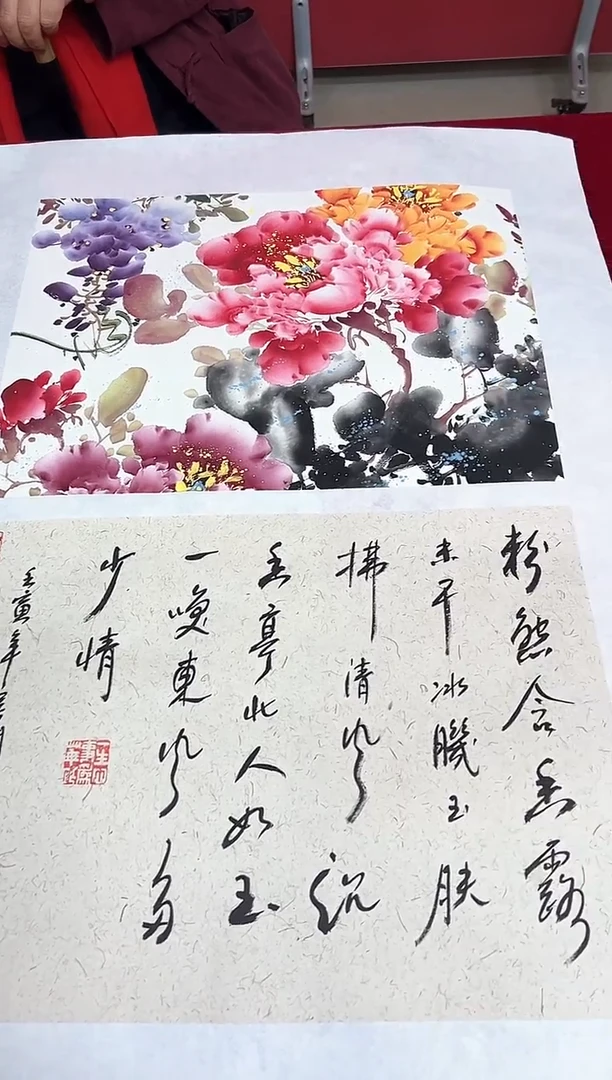 粉態含香露
未干冰肌玉肤
拂清風沉
香亭北人如玉
一唤東風多
少情
壬寅年